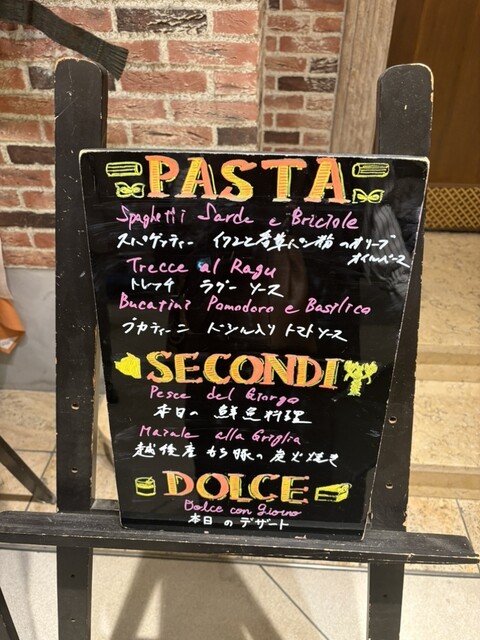 PASTA
Spaghetti Sarde e Briciole
スパゲッティー イワシと香草パン粉のオリーブ
オイルベース
Trecce al Ragu
トレッチ ラグーソース
Bucatini Pomodoro e Basilico
ブカティーニ バジル入り トマトソース
SECONDI
Pesce del Giorgo
本日の 鮮魚料理
Maiale alla Griglia
越後産 もち豚の炭火焼き
DOLCE
Dolce con Giorno
本日のデザート